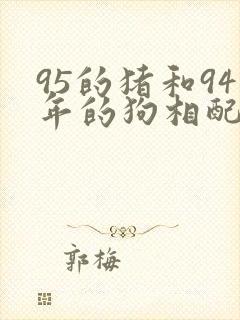 95的猪和94
年的狗相配
郭梅